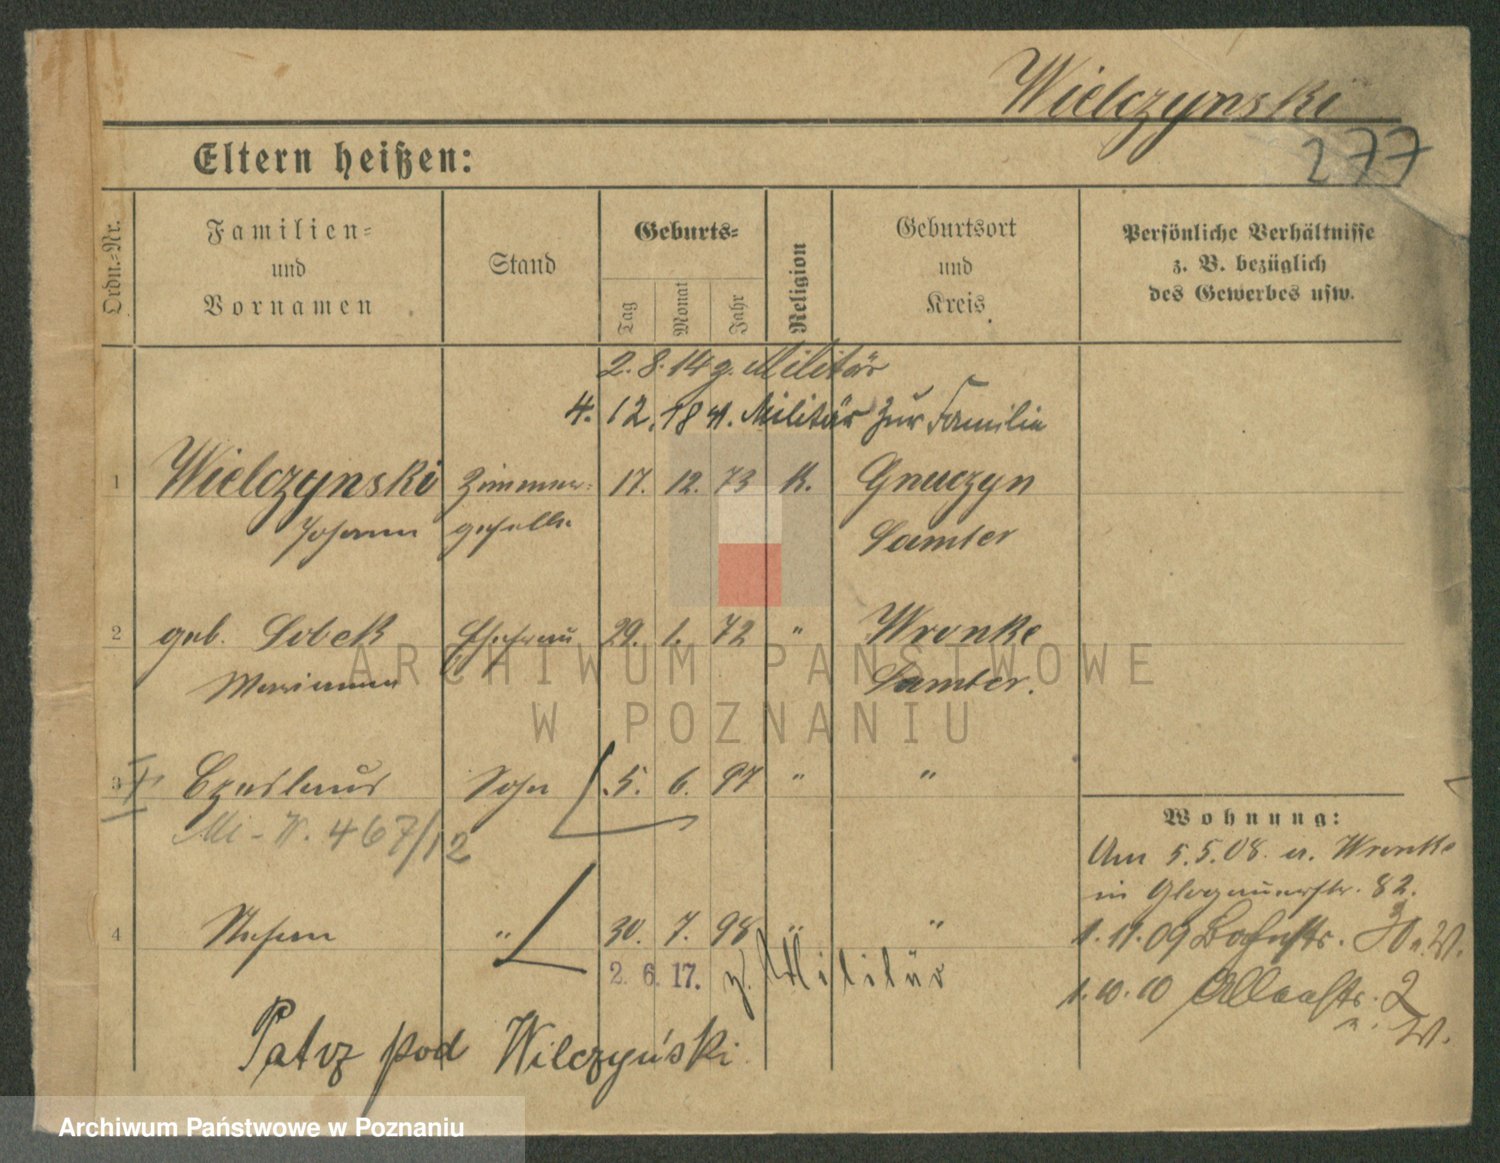 Wielczynski
277
Eltern heißen:
Ordn.-Nr.
Familien- und Vornamen
Stand
Geburts-
Tag
Monat
Jahr
Religion
Geburtsort und Kreis
Persönliche Verhältnisse z. B. bezüglich des Gewerbes usw.
2. 8. 14 z. Militär
4. 12. 18 v. Militär zur Familie
1 Wielczynski Zimmer- 17. 12. 73 K. Gnuczyn
Johann geselle Samter
2 geb. Sobek Ehefrau 29. 1. 72 " Wronke
Marianna Samter.
3 Czeslaus Sohn 5. 6. 97 " "
Mi - V. 467/12
Wohnung:
Am 5.5.08. a. Wronke
in Glogauerstr. 82.
4 Stefan " 30. 7. 98 " "
1. 11. 09
2. 6. 17. z. Militär
1. 10. 10
Patrz pod Wilczyński
ARCHIWUM PAŃSTWOWE
W POZNANIU
Archiwum Państwowe w Poznaniu